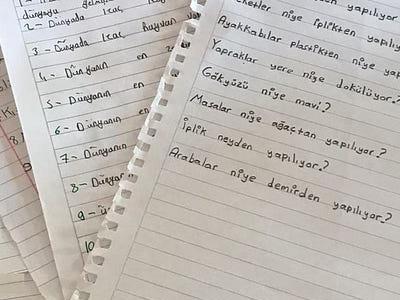 dünyaya
2 - Dünyada kaç
3 - Dünyada kaç hayvan
4 - Dünyanın en
5 - Dünyanın en
6 - Dünyanın en
7 - Dünyanın en
8 - Dünyanın
9 -
10
niye iplikten yapılıyor
Ayakkabılar plastikten niye
Yapraklar yere niye dökülüyor?
Gökyüzü niye mavi?
Masalar niye ağaçtan yapılıyor?
İplik neyden yapılıyor?
Arabalar niye demirden yapılıyor?